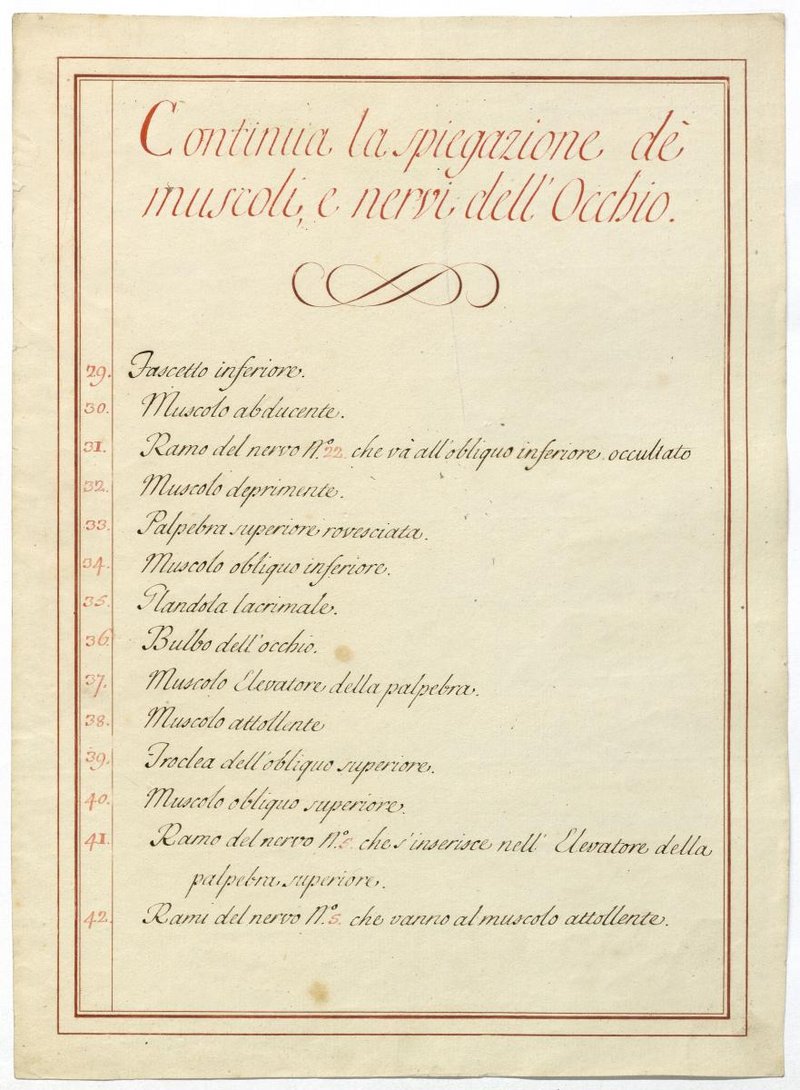 Continua la spiegazione dè
muscoli, e nervi dell'Occhio.
29. Fascetto inferiore.
30. Muscolo abducente.
31. Ramo del nervo N.º 22. che và all'obliquo inferiore occultato
32. Muscolo deprimente.
33. Palpebra superiore rovesciata.
34. Muscolo obliquo inferiore.
35. Glandola lacrimale.
36. Bulbo dell'occhio.
37. Muscolo Elevatore della palpebra.
38. Muscolo attollente
39. Troclea dell'obliquo superiore.
40. Muscolo obliquo superiore.
41. Ramo del nervo N.º 5. che s'inserisce nell' Elevatore della
palpebra superiore.
42. Rami del nervo N.º 5. che vanno al muscolo attollente.